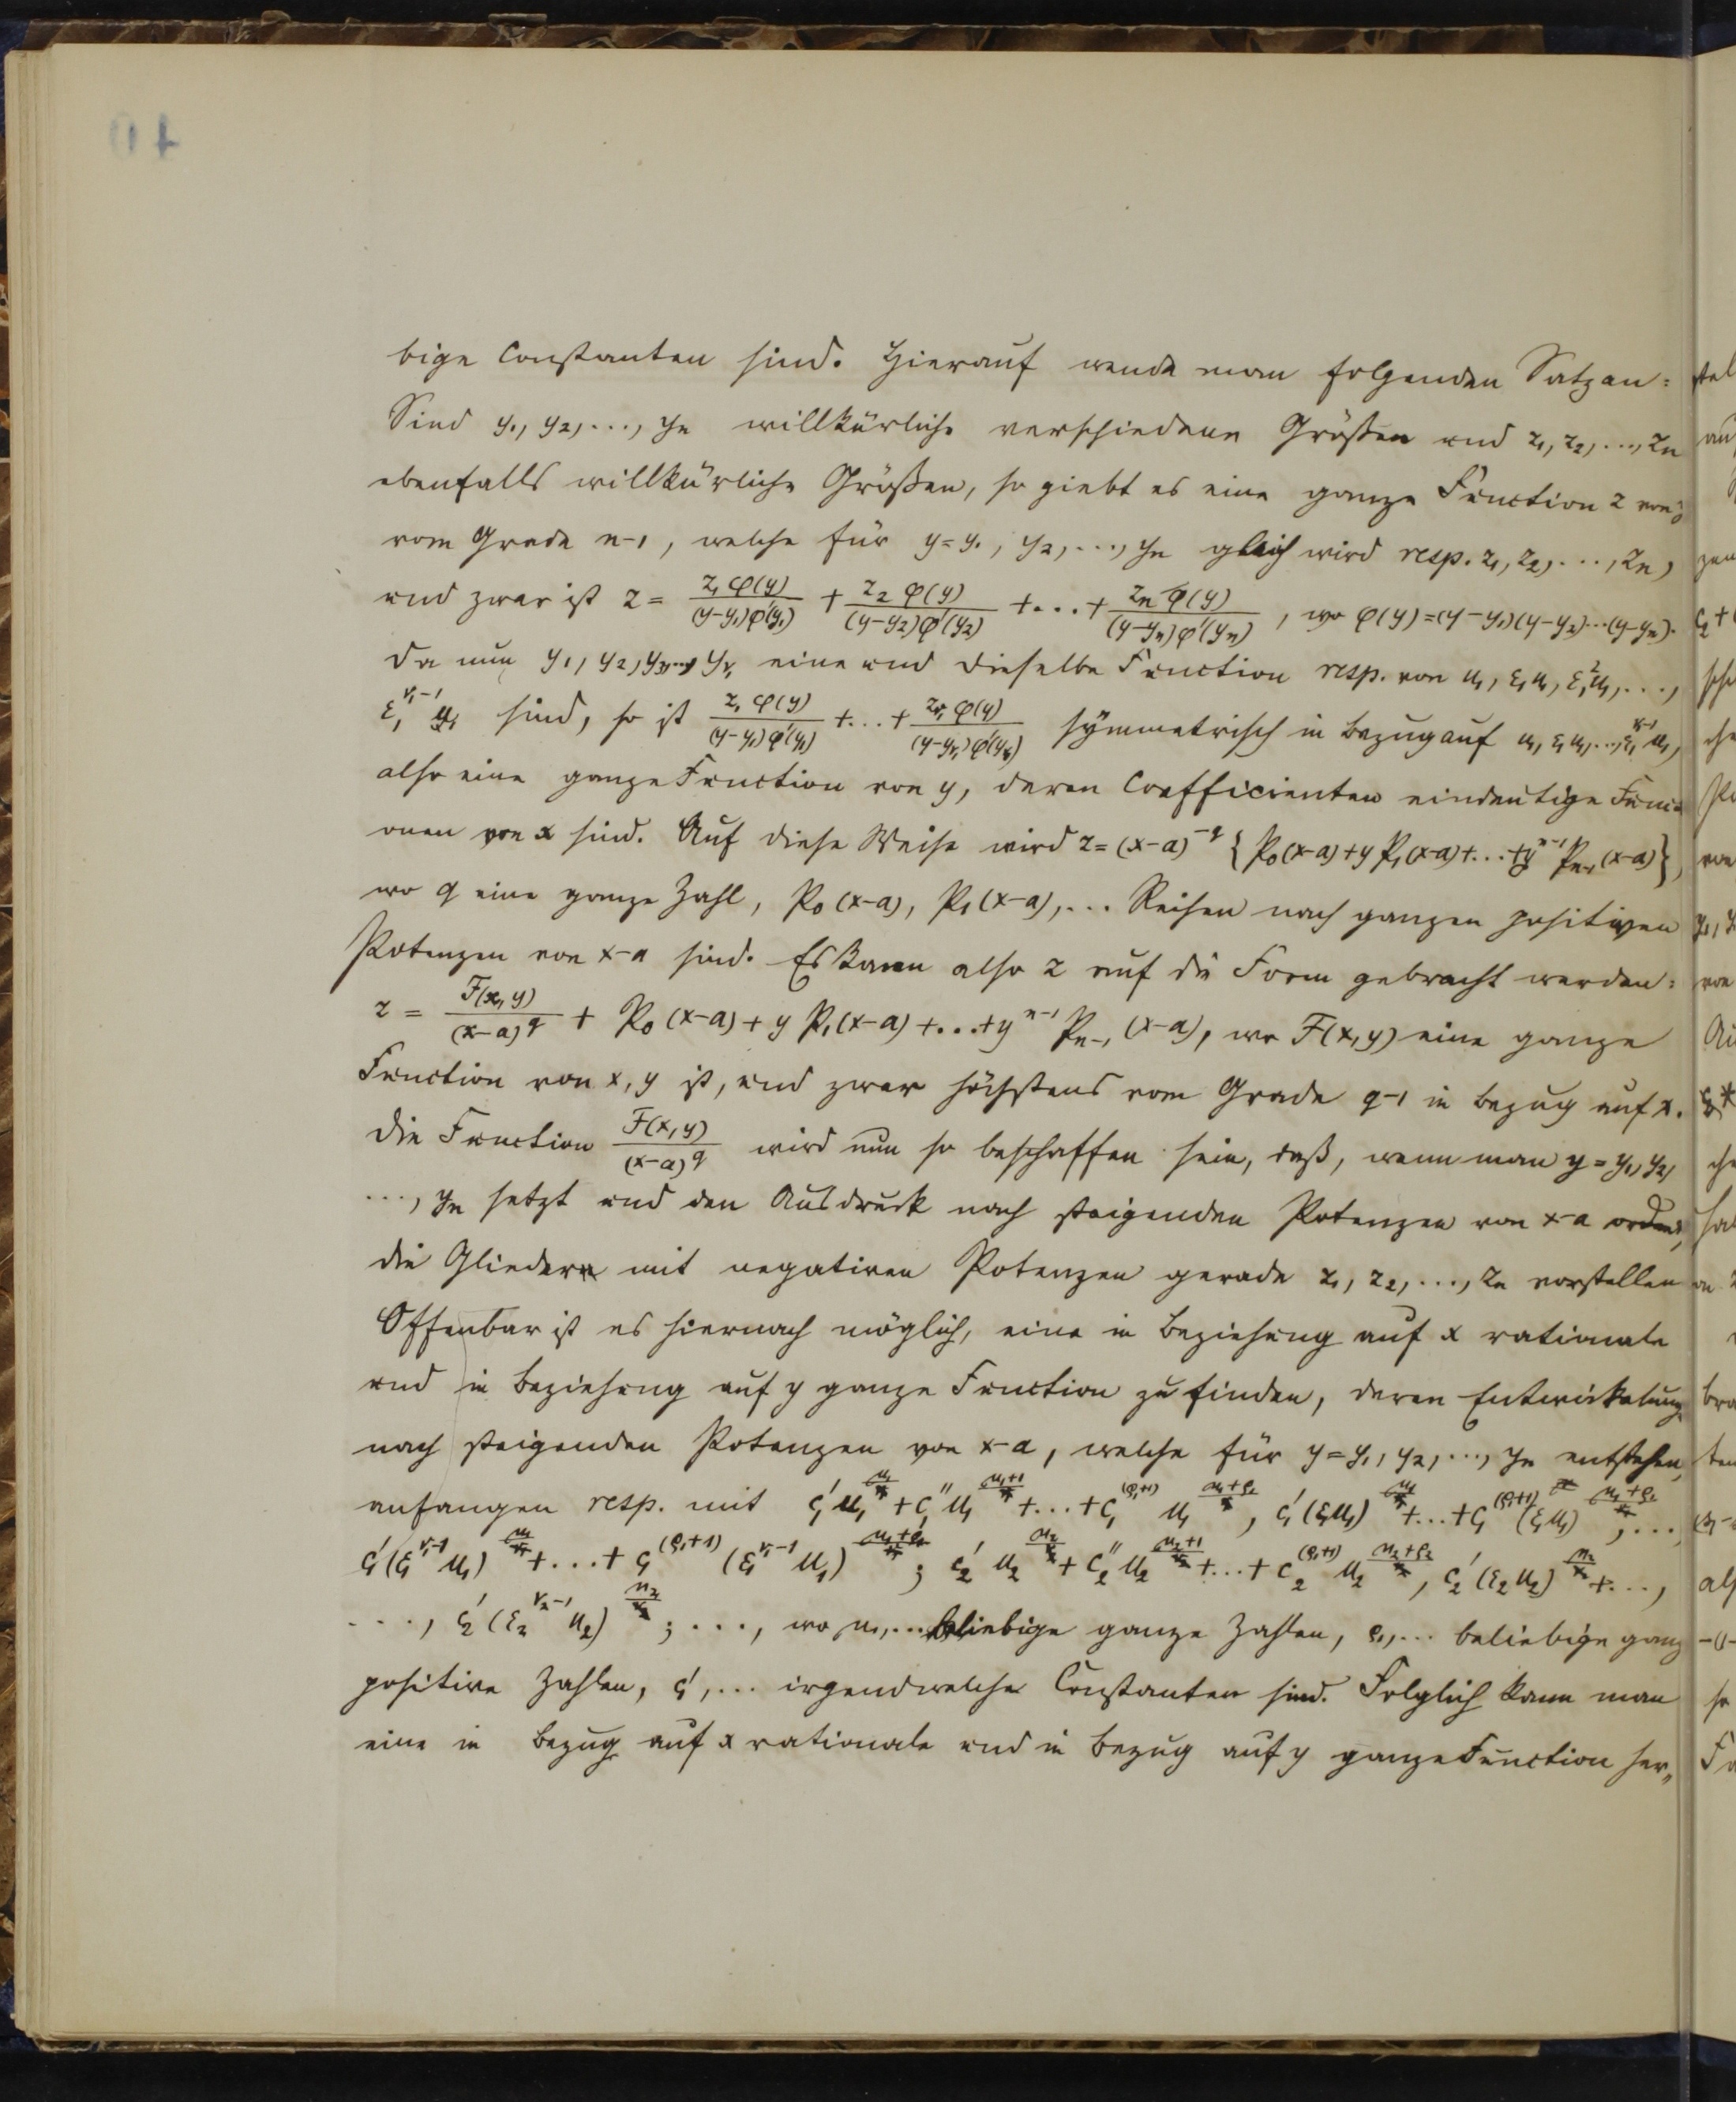 bige Constanten sind. Hierauf wende man folgenden Satz an:
Sind y₁, y₂, ..., yₙ willkürliche verschiedene Größen und z₁, z₂, ..., zₙ
ebenfalls willkürliche Größen, so giebt es eine ganze Function z von y
vom Grade n-1, welche für y = y₁, y₂, ..., yₙ gleich wird resp. z₁, z₂, ..., zₙ,
und zwar ist z = \frac{z₁ φ(y)}{(y-y₁)φ'(y₁)} + \frac{z₂ φ(y)}{(y-y₂)φ'(y₂)} + ... + \frac{zₙ φ(y)}{(y-yₙ)φ'(yₙ)}, wo φ(y) = (y-y₁)(y-y₂)...(y-yₙ).
Da nun y₁, y₂, y₃, ..., y_{ν₁} eine und dieselbe Function resp. von u₁, ε₁u₁, ε₁²u₁, ...,
ε₁^{ν₁-1} u₁ sind, so ist \frac{z₁ φ(y)}{(y-y₁)φ'(y₁)} + ... + \frac{z_{ν₁} φ(y)}{(y-y_{ν₁})φ'(y_{ν₁})} symmetrisch in Bezug auf u₁, ε₁u₁, ..., ε₁^{ν₁-1}u₁,
also eine ganze Function von y, deren Coefficienten eindeutige Functi-
onen von x sind. Auf diese Weise wird z = (x-a)^{-q} {p₀(x-a) + y p₁(x-a) + ... + y^{n-1} p_{n-1}(x-a)},
wo q eine ganze Zahl, p₀(x-a), p₁(x-a), ... Reihen nach ganzen positiven
Potenzen von x-a sind. Es kann also z auf die Form gebracht werden:
z = \frac{F(x,y)}{(x-a)^q} + p₀(x-a) + y p₁(x-a) + ... + y^{n-1} p_{n-1}(x-a), wo F(x,y) eine ganze
Function von x, y ist, und zwar höchstens vom Grade q-1 in Bezug auf x.
Die Function \frac{F(x,y)}{(x-a)^q} wird nun so beschaffen sein, daß, wenn man y = y₁, y₂,
..., yₙ setzt und den Ausdruck nach steigenden Potenzen von x-a ordnet,
die Glieder mit negativen Potenzen gerade z₁, z₂, ..., zₙ vorstellen.
Offenbar ist es hiernach möglich, eine in Beziehung auf x rationale
und in Beziehung auf y ganze Function zu finden, deren Entwickelung
nach steigenden Potenzen von x-a, welche für y = y₁, y₂, ..., yₙ entstehen,
anfangen resp. mit c₁' u₁^{μ₁} + c₁'' u₁^{μ₁+1} + ... + c₁^{(ρ₁+1)} u₁^{μ₁+ρ₁}, c₁'(ε₁u₁)^{μ₁} + ... + c₁^{(ρ₁+1)}(ε₁u₁)^{μ₁+ρ₁}, ...,
c₁'(ε₁^{ν₁-1}u₁)^{μ₁} + ... + c₁^{(ρ₁+1)}(ε₁^{ν₁-1}u₁)^{μ₁+ρ₁}; c₂' u₂^{μ₂} + c₂'' u₂^{μ₂+1} + ... + c₂^{(ρ₂+1)} u₂^{μ₂+ρ₂}, c₂'(ε₂u₂)^{μ₂} + ...,
..., c₂'(ε₂^{ν₂-1}u₂)^{μ₂}; ..., wo μ₁, ... beliebige ganze Zahlen, ρ₁, ... beliebige ganze
positive Zahlen, c₁', ... irgendwelche Constanten sind. Folglich kann man
eine in Bezug auf x rationale und in Bezug auf y ganze Function her„